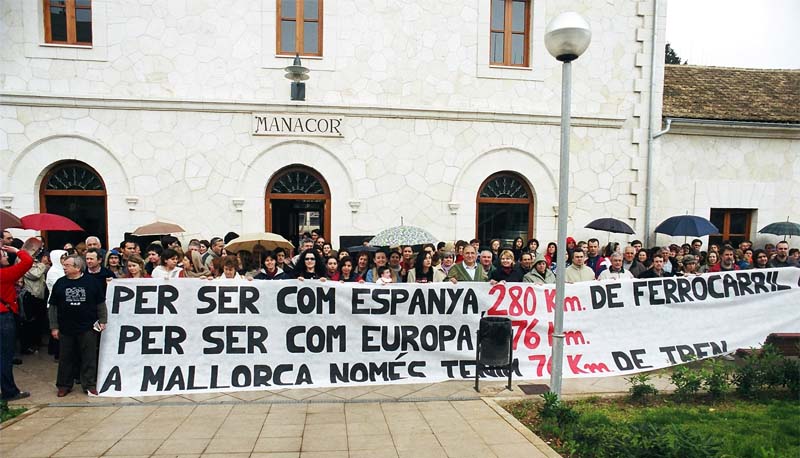 MANACOR
PER SER COM ESPANYA, 280 Km. DE FERROCARRIL
PER SER COM EUROPA, 76 Km.
A MALLORCA NOMÉS TENIM 76 Km. DE TREN